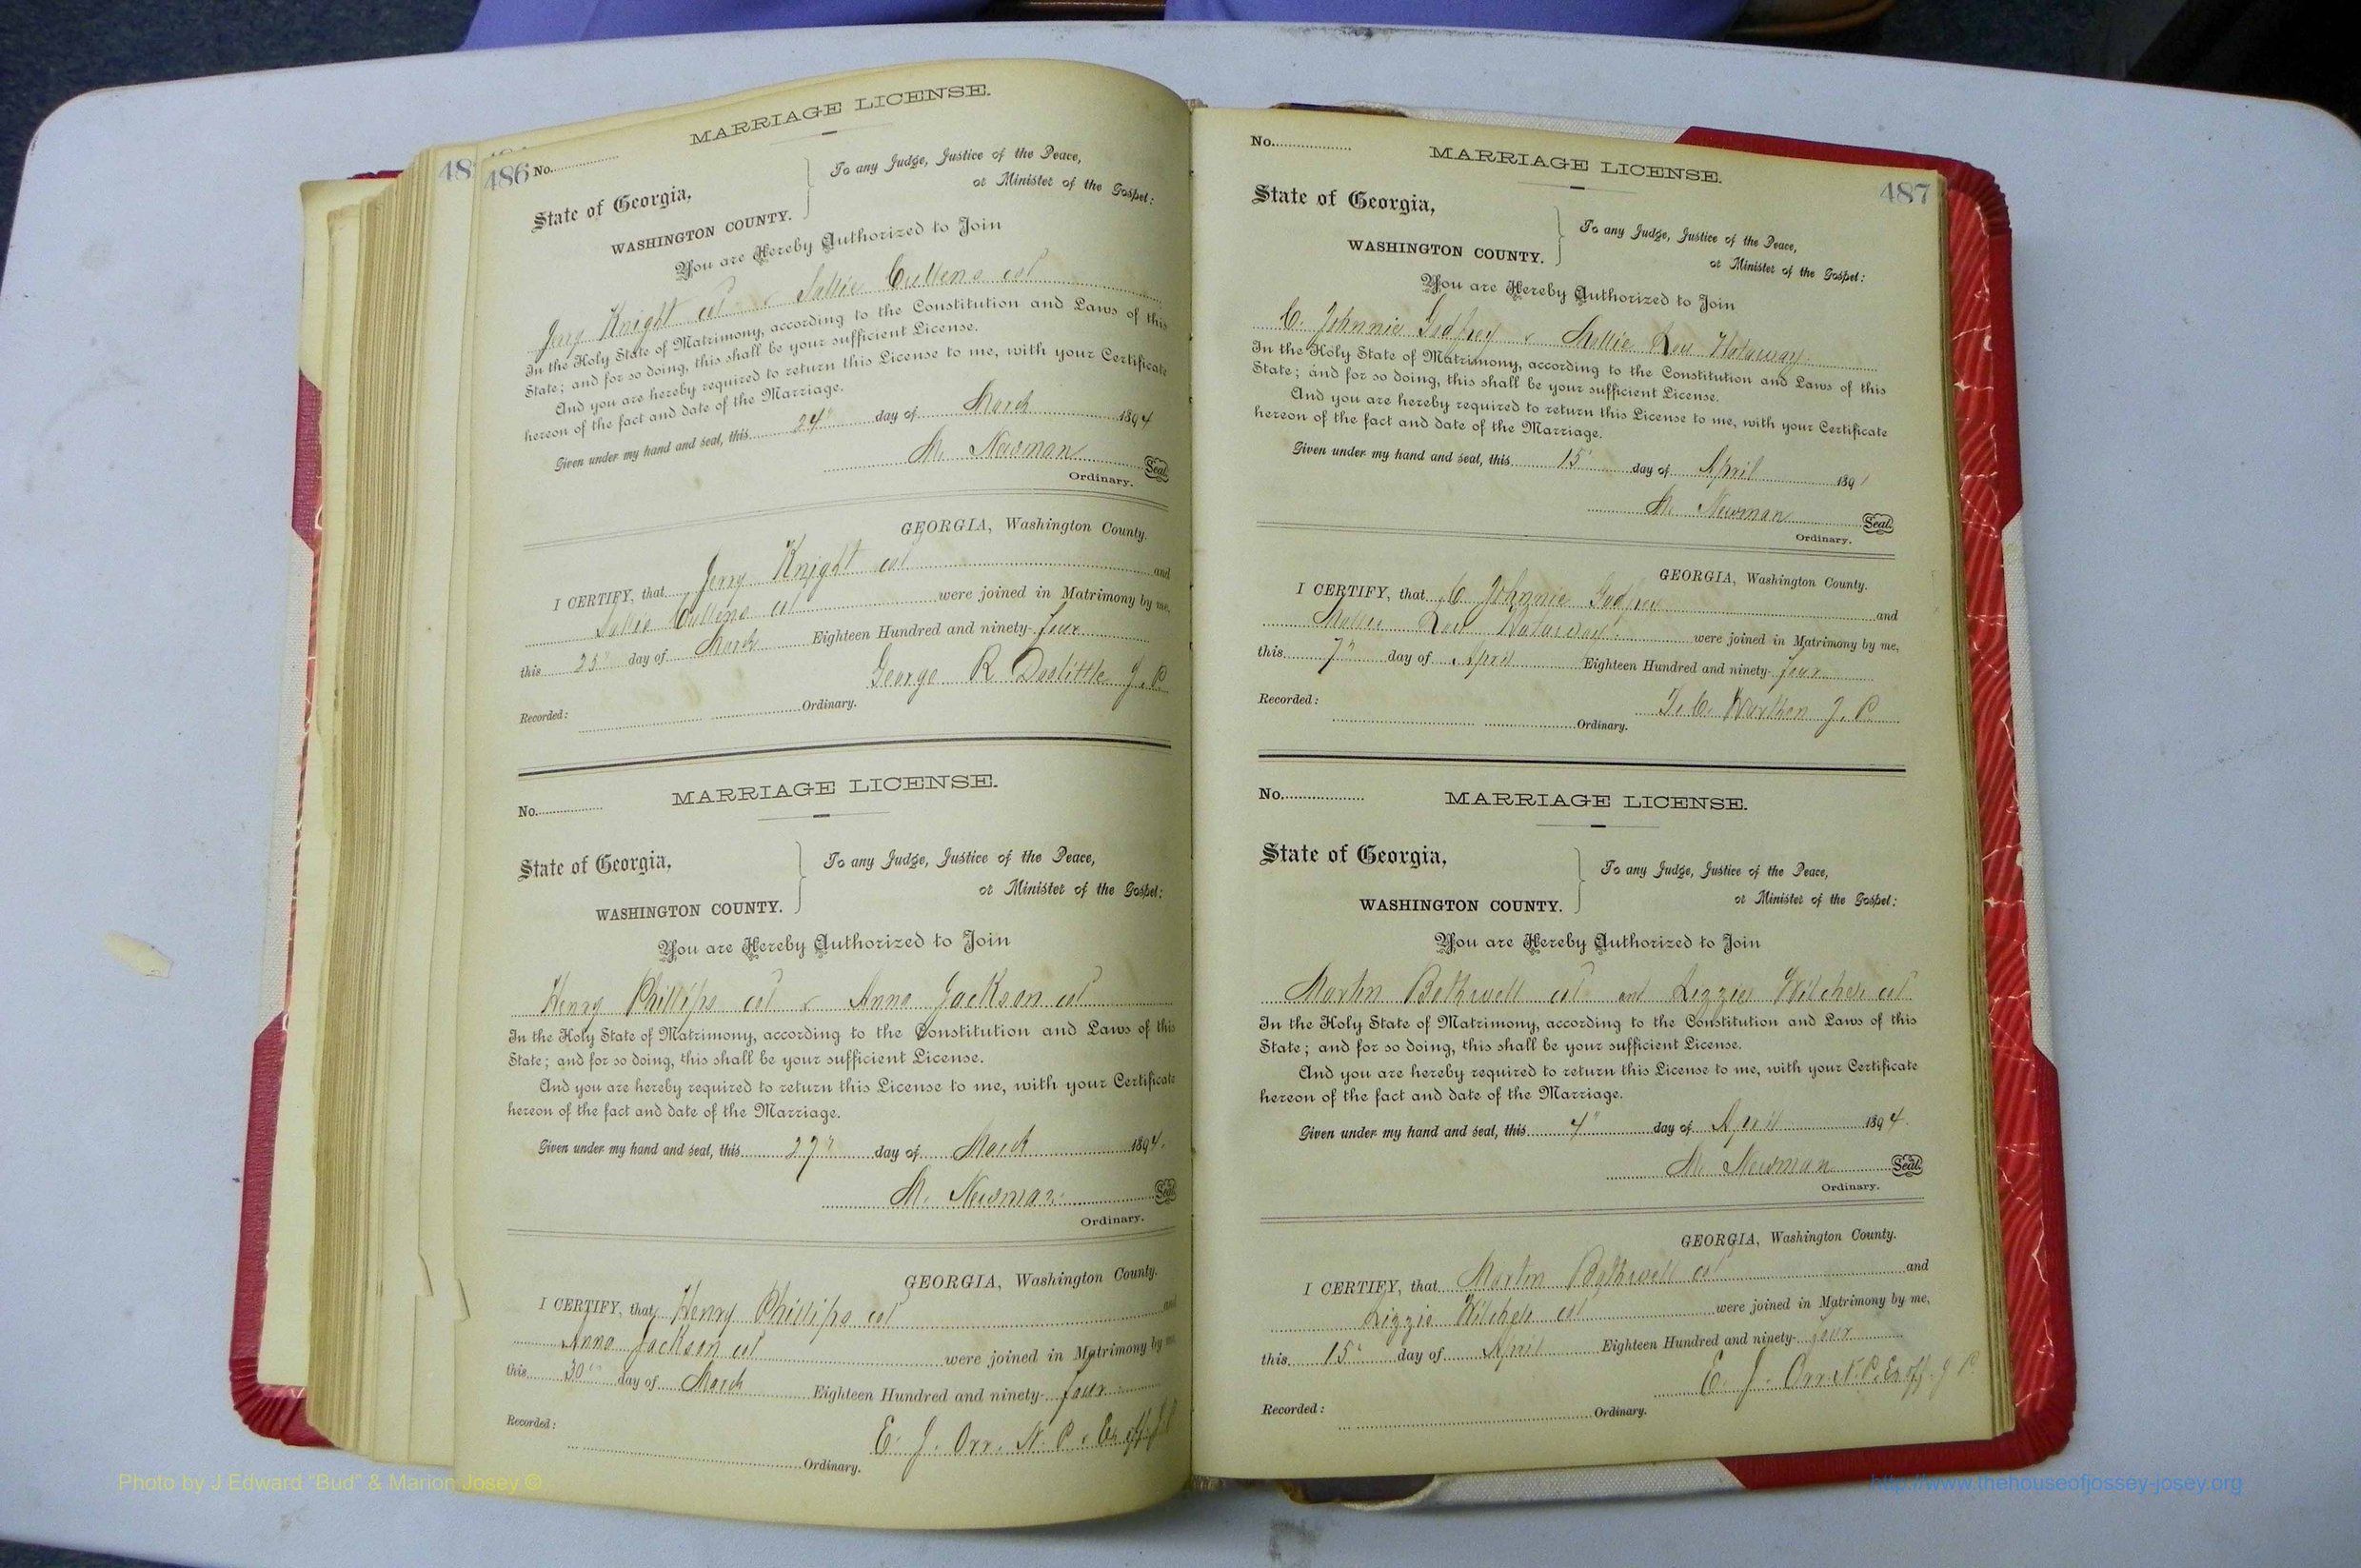 48
486 No.
MARRIAGE LICENSE.
State of Georgia,
WASHINGTON COUNTY.
To any Judge, Justice of the Peace,
or Minister of the Gospel:
You are Hereby Authorized to Join
Jerry Knight col & Sallie Cullens col
In the Holy State of Matrimony, according to the Constitution and Laws of this
State; and for so doing, this shall be your sufficient License.
And you are hereby required to return this License to me, with your Certificate
hereon of the fact and date of the Marriage.
Given under my hand and seal, this 24" day of March 1894
M. Newman Seal
Ordinary.
GEORGIA, Washington County.
I CERTIFY, that Jerry Knight col and
Sallie Cullens col were joined in Matrimony by me,
this 25" day of March Eighteen Hundred and ninety-four
George R Doolittle J. P.
Recorded: Ordinary.
No.
MARRIAGE LICENSE.
State of Georgia,
WASHINGTON COUNTY.
To any Judge, Justice of the Peace,
or Minister of the Gospel:
You are Hereby Authorized to Join
Henry Phillips col & Anna Jackson col
In the Holy State of Matrimony, according to the Constitution and Laws of this
State; and for so doing, this shall be your sufficient License.
And you are hereby required to return this License to me, with your Certificate
hereon of the fact and date of the Marriage.
Given under my hand and seal, this 27" day of March 1894.
M. Newman Seal
Ordinary.
GEORGIA, Washington County.
I CERTIFY, that Henry Phillips col and
Anna Jackson col were joined in Matrimony by me
this 30" day of March Eighteen Hundred and ninety-four
E. J. Orr. N. P. & Ex off J P
Recorded: Ordinary.
No.
MARRIAGE LICENSE.
487
State of Georgia,
WASHINGTON COUNTY.
To any Judge, Justice of the Peace,
or Minister of the Gospel:
You are Hereby Authorized to Join
C. Johnnie Godfrey & Mollie Lou Hataway
In the Holy State of Matrimony, according to the Constitution and Laws of this
State; and for so doing, this shall be your sufficient License.
And you are hereby required to return this License to me, with your Certificate
hereon of the fact and date of the Marriage.
Given under my hand and seal, this 15' day of April 189
M. Newman Seal
Ordinary.
GEORGIA, Washington County.
I CERTIFY, that C Johnnie Godfrey and
Mollie Lou Hataway were joined in Matrimony by me,
this 7" day of April Eighteen Hundred and ninety-four
T. C. Warthen J. P.
Recorded: Ordinary.
No.
MARRIAGE LICENSE.
State of Georgia,
WASHINGTON COUNTY.
To any Judge, Justice of the Peace,
or Minister of the Gospel:
You are Hereby Authorized to Join
Martin Bothwell col and Lizzie Wilcher col
In the Holy State of Matrimony, according to the Constitution and Laws of this
State; and for so doing, this shall be your sufficient License.
And you are hereby required to return this License to me, with your Certificate
hereon of the fact and date of the Marriage.
Given under my hand and seal, this 4" day of April 1894.
M. Newman Seal
Ordinary.
GEORGIA, Washington County.
I CERTIFY, that Martin Bothwell col and
Lizzie Wilcher col were joined in Matrimony by me,
this 15" day of April Eighteen Hundred and ninety-four
E. J. Orr N. P. Ex off J P
Recorded: Ordinary.
Photo by J Edward "Bud" & Marion Josey ©
http://www.thehouseofjossey-josey.org